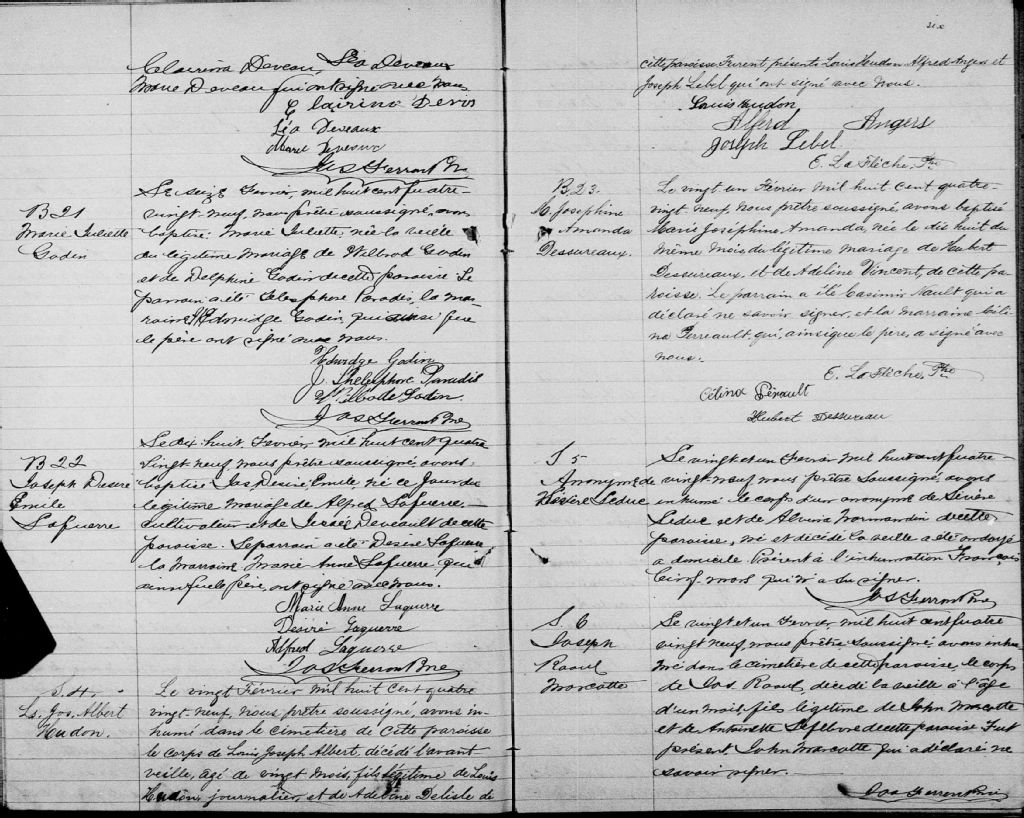 Clairina Deveau, Léa Deveaux
Marie Deveau qui ont signé avec nous
Clairina Devos
Léa Deveaux
Marie Deveaux
Jos Ferron Ptre
B 21
Marie Juliette
Godin
Le seize Février, mil huit cent quatre-
vingt-neuf, nous prêtre soussigné, avons
baptisé Marie Juliette, née la veille
du légitime mariage de Wilbrod Godin
et de Delphine Godin de cette paroisse Le
parrain a été Télesphore Paradis, la mar-
raine Edwidge Godin, qui ainsi que
le père ont signé avec nous.
Edwidge Godin
J Thelesphore Paradis
Godin
Jos Ferron Ptre
B 22
Joseph Desire
Emile
Laguerre
Le dix-huit Fevrier, mil huit cent quatre
vingt-neuf, nous prêtre soussigné, avons
baptisé Jos Desiré Emile, né ce jour du
légitime mariage de Alfred Laguerre
cultivateur et de Deveault de cette
paroisse. Le parrain a été Desiré Laguerre
la Marraine Marie Anne Laguerre qui
ainsi que le père, ont signé avec nous.
Marie Anne Laguerre
Désiré Laguerre
Alfred Laguerre
Jos Ferron Ptre
S. 4.
Ls. Jos. Albert
Hudon.
Le vingt Février mil huit cent quatre
vingt-neuf, nous prêtre soussigné, avons in-
humé dans le cimetière de cette paroisse
le corps de Louis Joseph Albert, décédé l'avant
veille, agé de vingt mois, fils légitime de Louis
Hudon, journalier, et de Adeline Delisle de
six
cette paroisse. Furent présents Louis Hudon Alfred Angers et
Joseph Lebel qui ont signé avec nous.
Louis Hudon
Alferd Angers
Joseph Lebel
E. La Flèche, Ptre
B 23.
M. Josephine
Amanda
Dessureaux.
Le vingt un Février mil huit cent quatre-
vingt-neuf, nous prêtre soussigné, avons baptisé
Marie Joséphine Amanda, née le dix huit du
même mois du légitime mariage de Hubert
Dessureaux, et de Adeline Vincent, de cette pa-
roisse. Le parrain a été Casimir Nault qui a
déclaré ne savoir signer, et la marraine Céli-
na Perreault, qui, ainsi que le père, a signé avec
nous.
E. La Flèche, Ptre
Célina Pérault
Hubert Dessureau
S 5
Anonyme de
Sévère Leduc
Le vingt et un Fevrier mil huit cent quatre-
vingt neuf nous prêtre soussigné, avons
inhumé le corps d'un anonyme de Sévère
Leduc et de Alvina Normandin de cette
paroisse, né et décédé la veille a été ondoyé
a domicile Présent à l'inhumation François
Cinqmars qui n'a su signer.
Jos Ferron Ptre
S. 6
Joseph
Raoul
Marcotte
Le vingt et un Fevrier, mil huit cent quatre
vingt neuf, nous prêtre soussigné, avons inhu-
mé dans le cimetière de cette paroisse, le corps
de Jos Raoul, décédé la veille à l'âge
d'un mois, fils legitime de John Marcotte
et de Antoinette Lefebvre de cette paroisse Fut
présent, John Marcotte qui a déclaré ne
savoir signer.
Jos Ferron Ptre